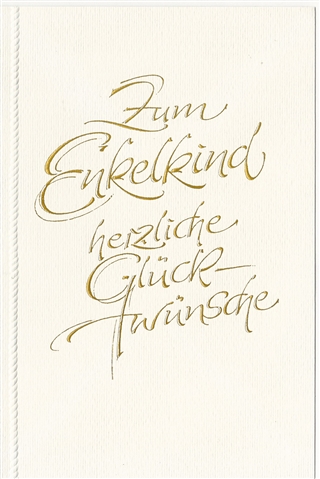 Zum
Enkelkind
herzliche
Glück-
wünsche